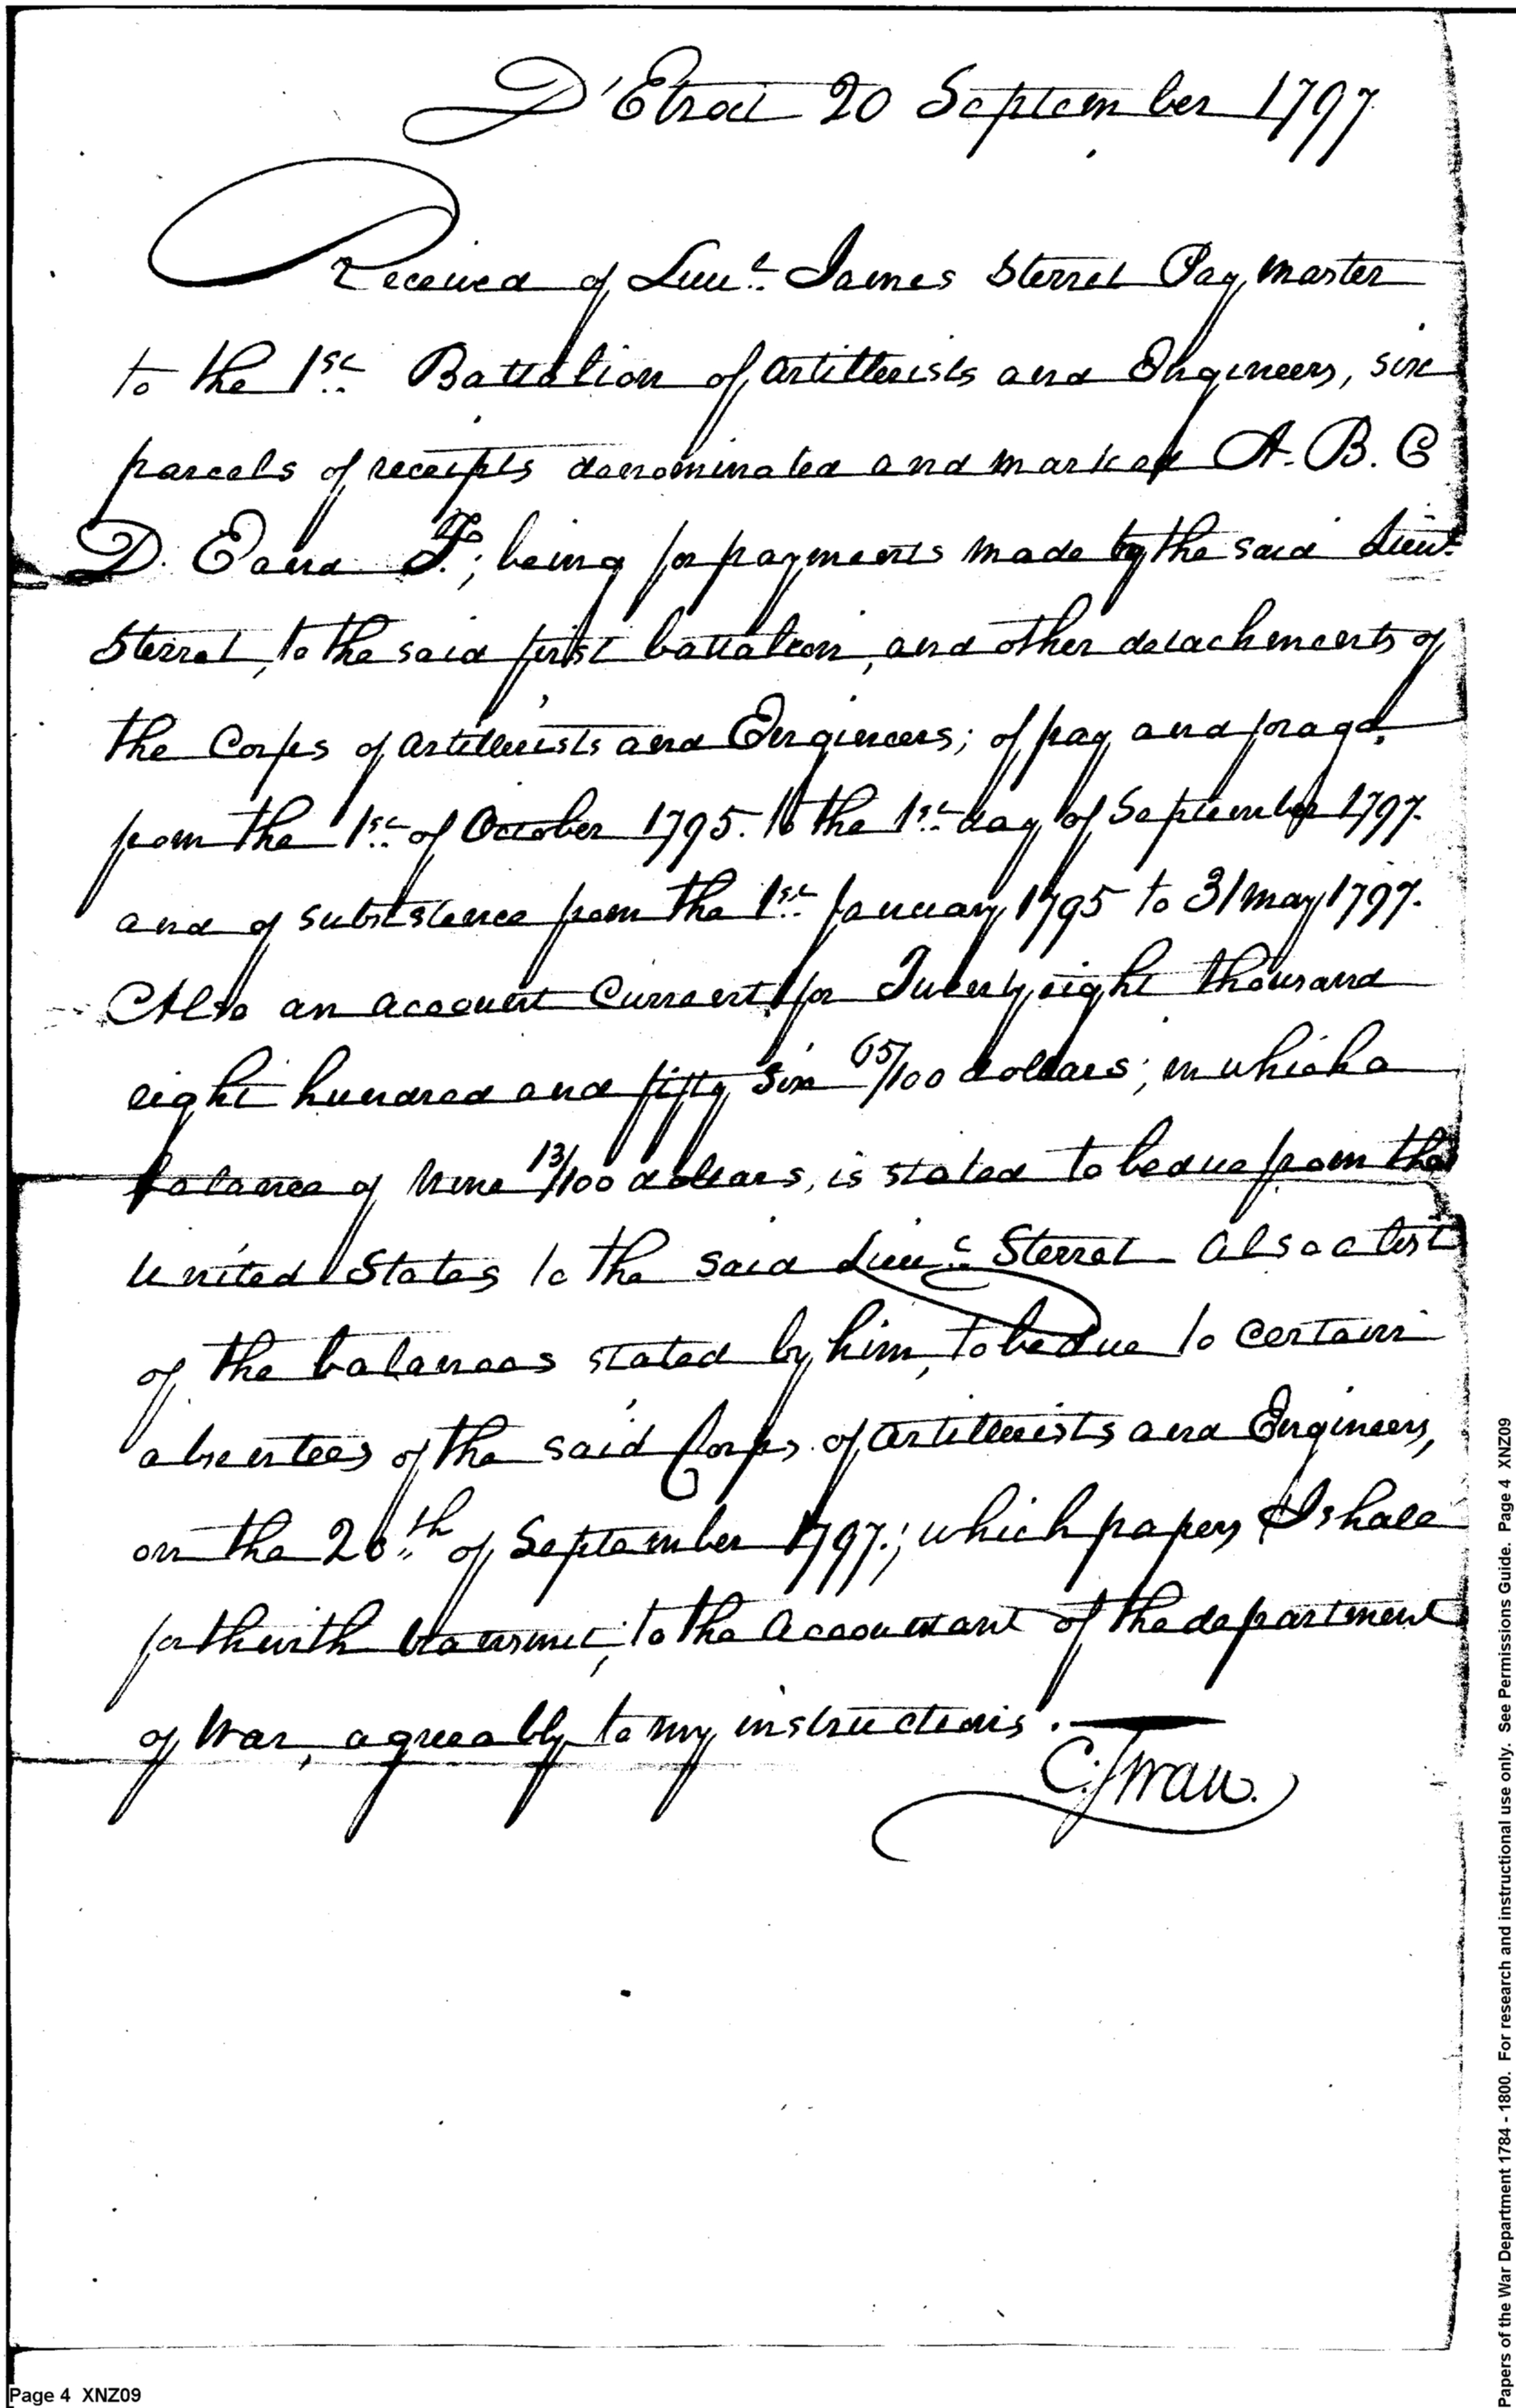 D'Etroit 20 September 1797
Received of Lieut. James Sterret Pay Master
to the 1st. Battalion of Artillerists and Engineers, six
parcels of receipts denominated and marked A. B. C
D. E and F.; being for payments made by the said Lieut.
Sterret, to the said first battalion, and other detachments of
the Corps of Artillerists and Engineers; of pay and forage,
from the 1st. of October 1795. to the 1st. day of September 1797.
and of subsistence from the 1st. January 1795 to 31 may 1797.
Also an account Current for Twenty eight thousand
eight hundred and fifty six 65/100 dollars; in which a
balance of Nine 13/100 dollars, is stated to be due from the
United States to the said Lieut. Sterret Also a list
of the balances stated by him, to be due to certain
absentees of the said Corps of Artillerists and Engineers,
on the 20th of September 1797.; which papers I shall
forthwith transmit, to the Accountant of the department
of War, agreeably to my instructions.
C. Swan.
Page 4 XNZ09
Papers of the War Department 1784 - 1800. For research and instructional use only. See Permissions Guide. Page 4 XNZ09